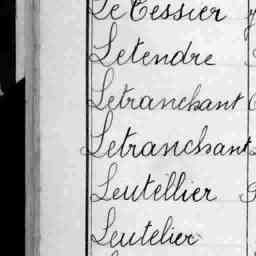 Le Tessier
Letendre
Letranchant
Letranchant
Leutellier
Leutelier